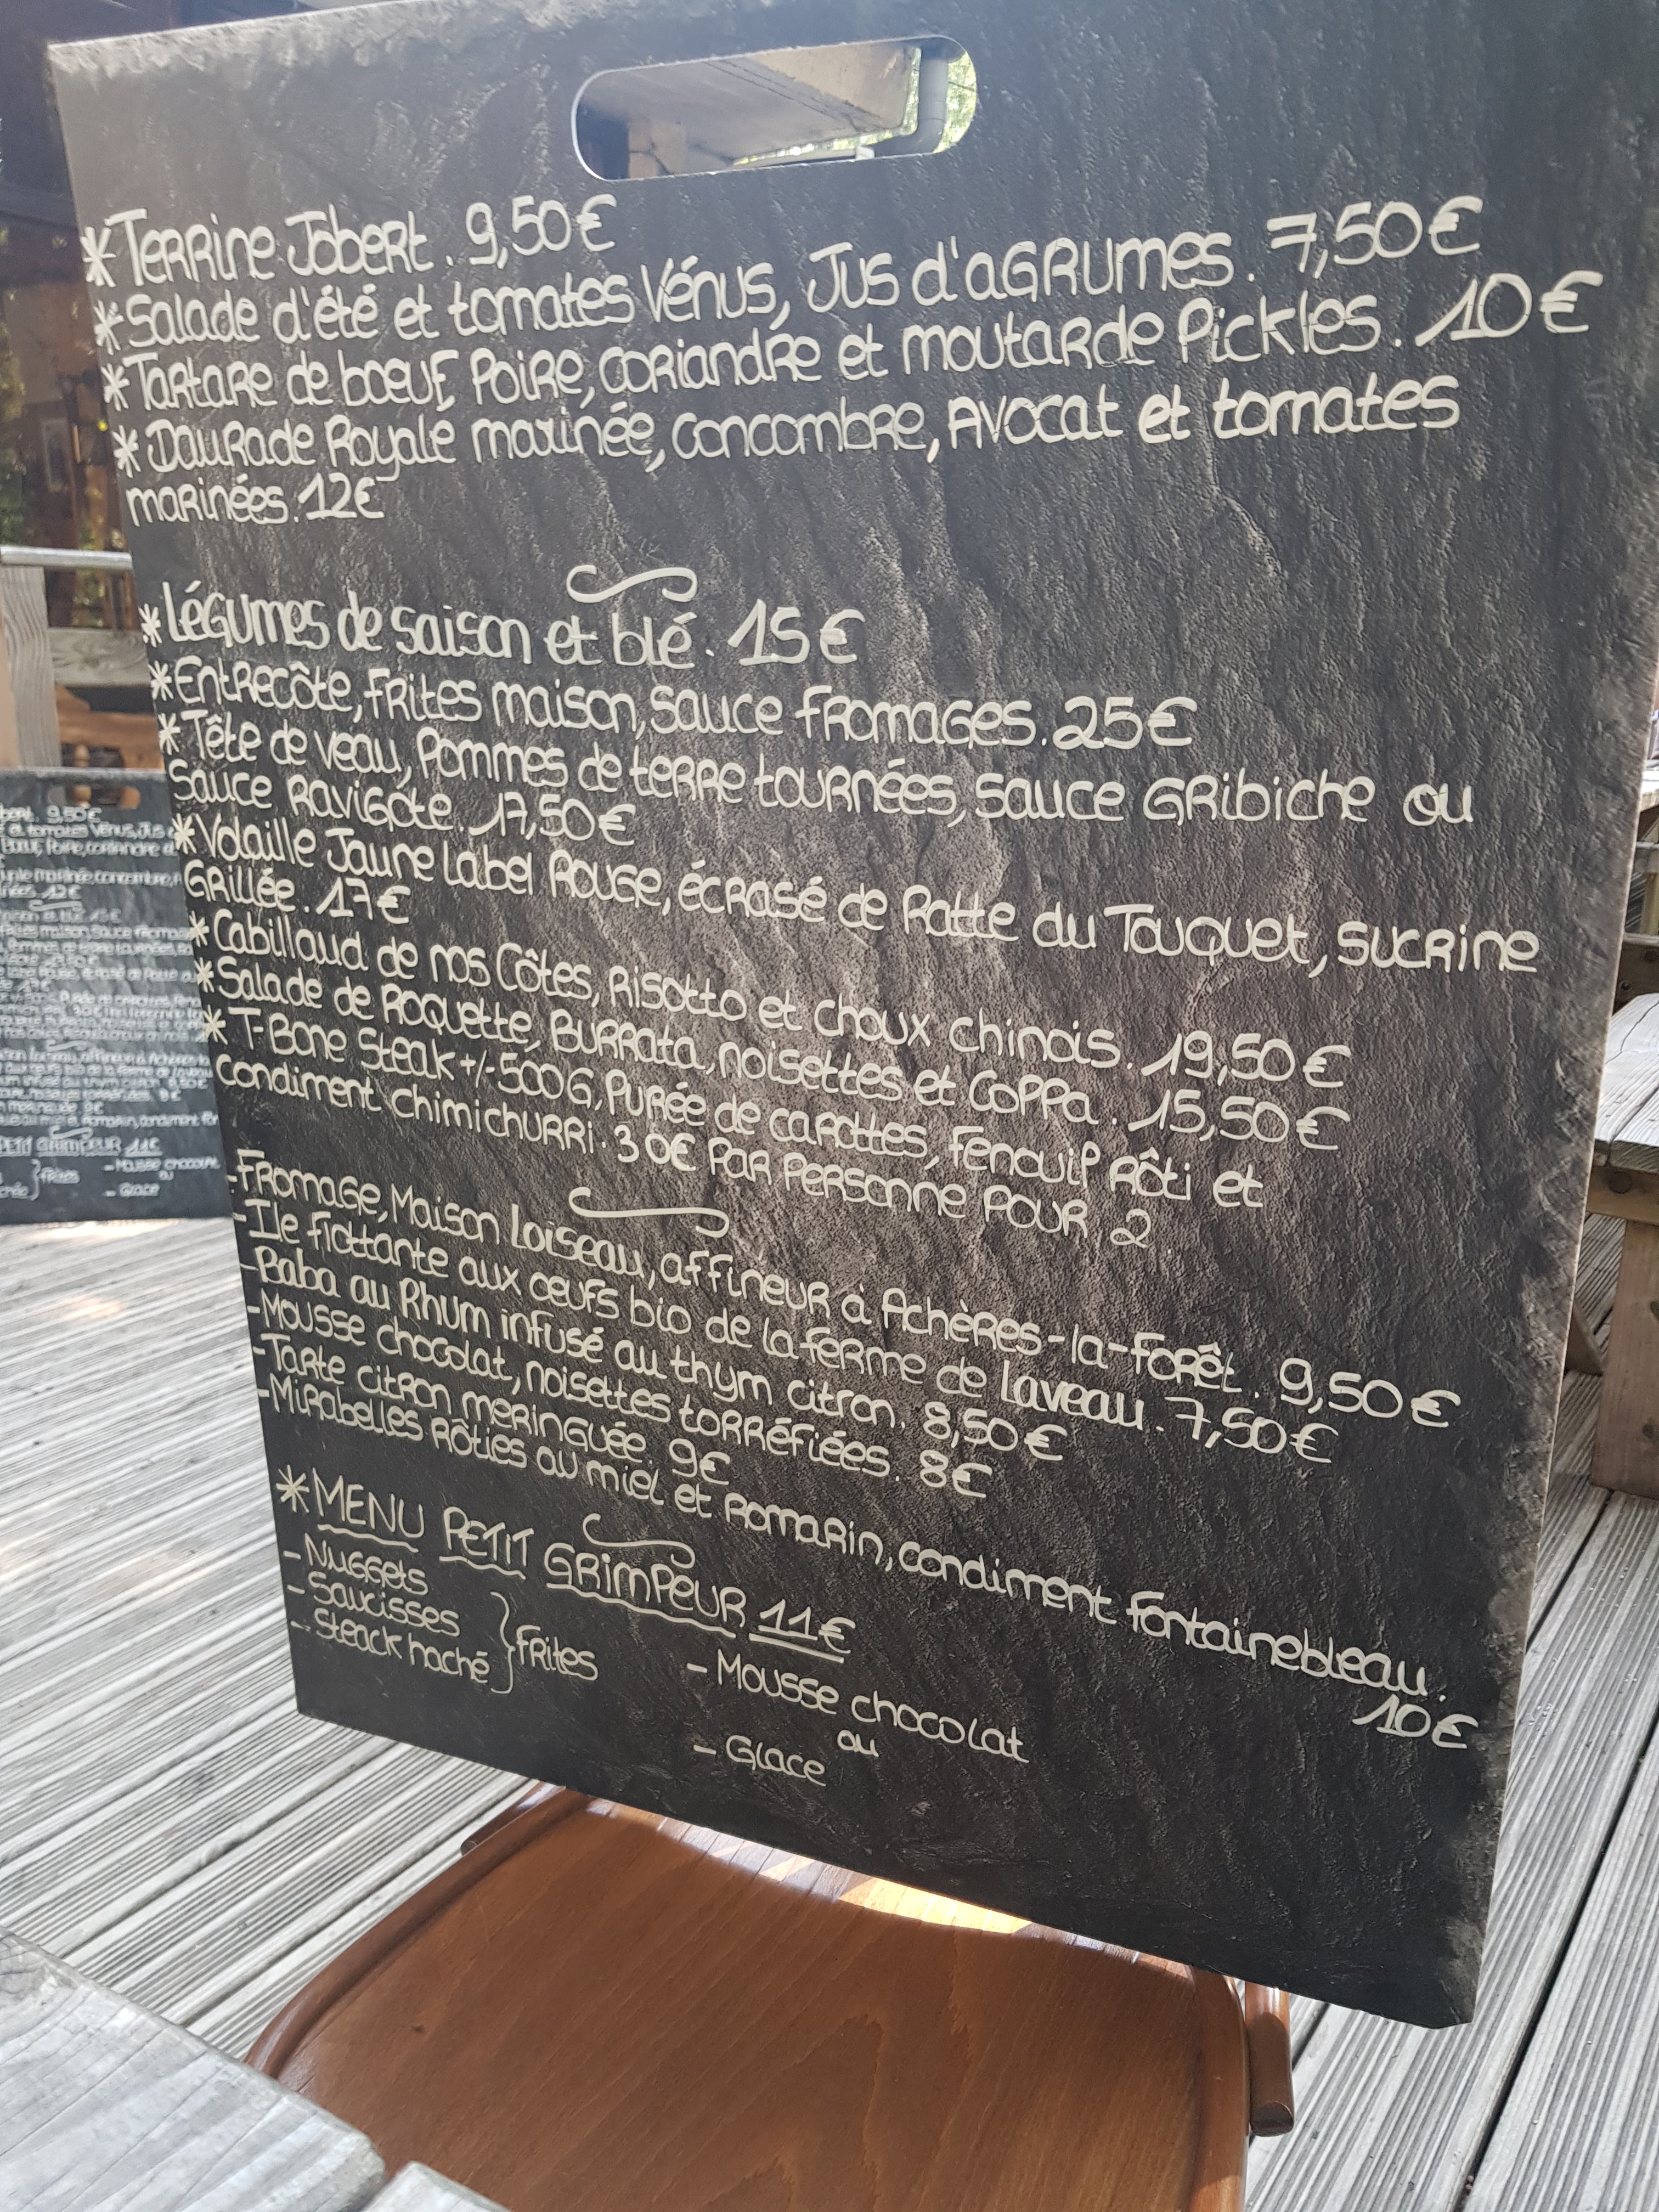 *Terrine Jobert. 9,50€
*Salade d'été et tomates Vénus, Jus d'agrumes. 7,50€
*Tartare de bœuf, Poire, coriandre et moutarde Pickles. 10€
*Daurade Royale marinée, concombre, Avocat et tomates
marinées. 12€
*Légumes de saison et blé. 15€
*Entrecôte, frites maison, sauce fromages. 25€
*Tête de veau, Pommes de terre tournées, sauce Gribiche ou
sauce Ravigote. 17,50€
*Volaille Jaune Label Rouge, écrasé de Ratte du Touquet, sucrine
Grillée. 17€
*Cabillaud de nos Côtes, Risotto et choux chinois. 19,50€
*Salade de Roquette, Burrata, noisettes et Coppa. 15,50€
*T-Bone Steak +/-500G, Purée de carottes, fenouil rôti et
condiment chimichurri. 30€ Par Personne Pour 2
-Fromage, Maison Loiseau, affineur à Achères-la-Forêt. 9,50€
-Ile flottante aux œufs bio de la ferme de Laveau. 7,50€
-Baba au Rhum infusé au thym citron. 8,50€
-Mousse chocolat, noisettes torréfiées. 8€
-Tarte citron meringuée. 9€
-Mirabelles Rôties au miel et Romarin, condiment fontainebleau.
10€
*MENU PETIT GRIMPEUR 11€
- Nuggets
- Saucisses
- Steack haché } Frites
- Mousse chocolat
ou
- Glace